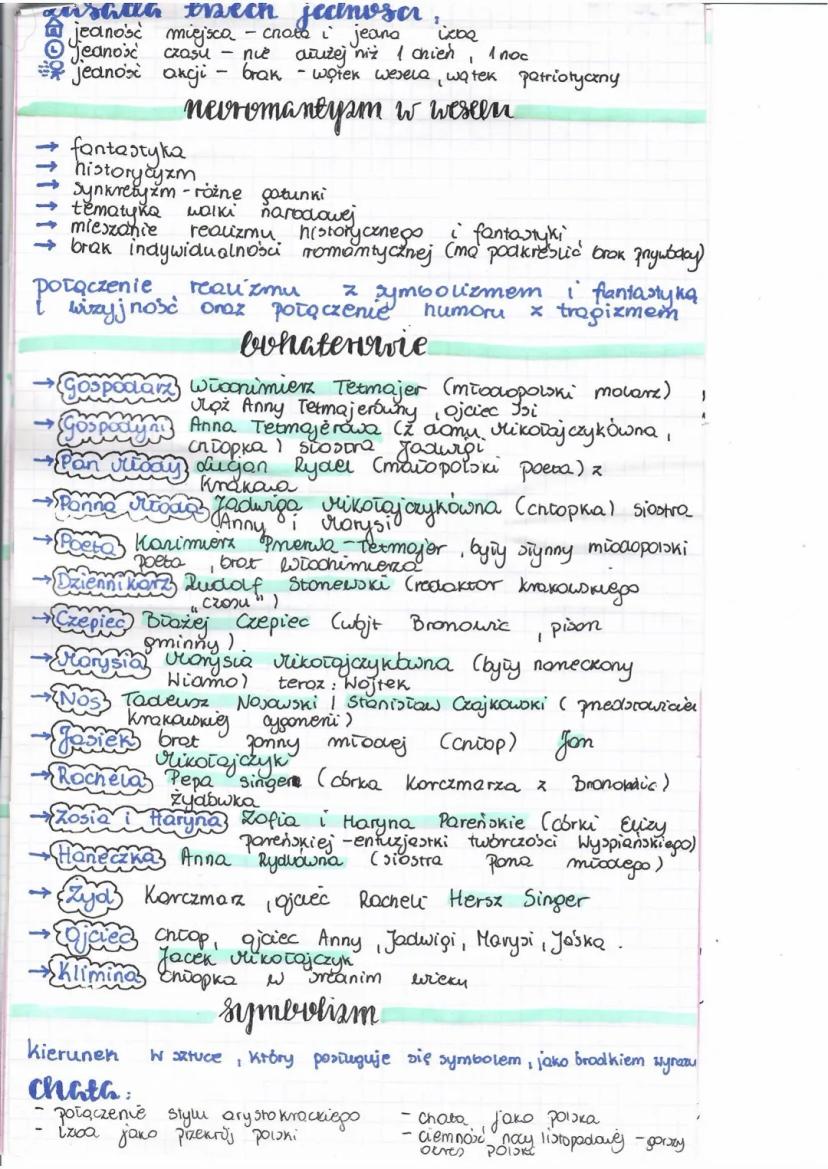 zasada trzech jedności:
jedność miejsca - chata i jedna izba
jedność czasu - nie dłużej niż 1 dzień, 1 noc
jedność akcji - brak - wątek wesela, wątek patriotyczny
neoromantyzm w weselu
→ fantastyka
→ historyzm
→ synkretyzm - różne gatunki
→ tematyka walki narodowej
→ mieszanie realizmu historycznego i fantastyki
→ brak indywidualności romantycznej (ma podkreślić brak przywódcy)
połączenie realizmu z symbolizmem i fantastyką
i wizyjność oraz połączenie humoru z tragizmem
bohaterowie
→ Gospodarz Włodzimierz Tetmajer (młodopolski malarz)
Mąż Anny Tetmajerówny, ojciec Isi
→ Gospodyni Anna Tetmajerowa (z domu Mikołajczykówna,
chłopka) siostra Jadwigi
→ Pan Młody Lucjan Rydel (małopolski poeta) z
Krakowa
→ Panna Młoda Jadwiga Mikołajczykówna (chłopka) siostra
Anny i Marysi
→ Poeta Kazimierz Przerwa-Tetmajer, były słynny młodopolski
poeta, brat Włodzimierza
→ Dziennikarz Rudolf Starzewski (redaktor krakowskiego
"czasu")
→ Czepiec Błażej Czepiec (wójt Bronowic, pisarz
gminny)
→ Marysia Marysia Mikołajczykówna (były narzeczony
Wiamo) teraz: Wojtek
→ Nos Tadeusz Noskowski / Stanisław Czajkowski (przedstawiciel
krakowskiej cyganerii)
→ Jasiek brat panny młodej (chłop) Jan
Mikołajczyk
→ Rachela Pepa Singer (córka Korczmarza z Bronowic)
żydówka
→ Zosia i Haryna Zofia i Maryna Pareńskie (córki Elizy
pareńskiej - entuzjastki twórczości Wyspiańskiego)
→ Haneczka Anna Rydlówna (siostra pana młodego)
→ Żyd Korczmarz, ojciec Racheli Hersz Singer
→ Ojciec chłop, ojciec Anny, Jadwigi, Marysi, Jaśka.
Jacek Mikołajczyk
→ Klimina chłopka w średnim wieku
symbolizm
kierunek w sztuce, który posługuje się symbolem, jako środkiem wyrazu
chata:
- połączenie stylu arystokrackiego
- izba jako przekrój polski
- chata jako polska
- ciemność nocy listopadowej - gorszy
okres polski